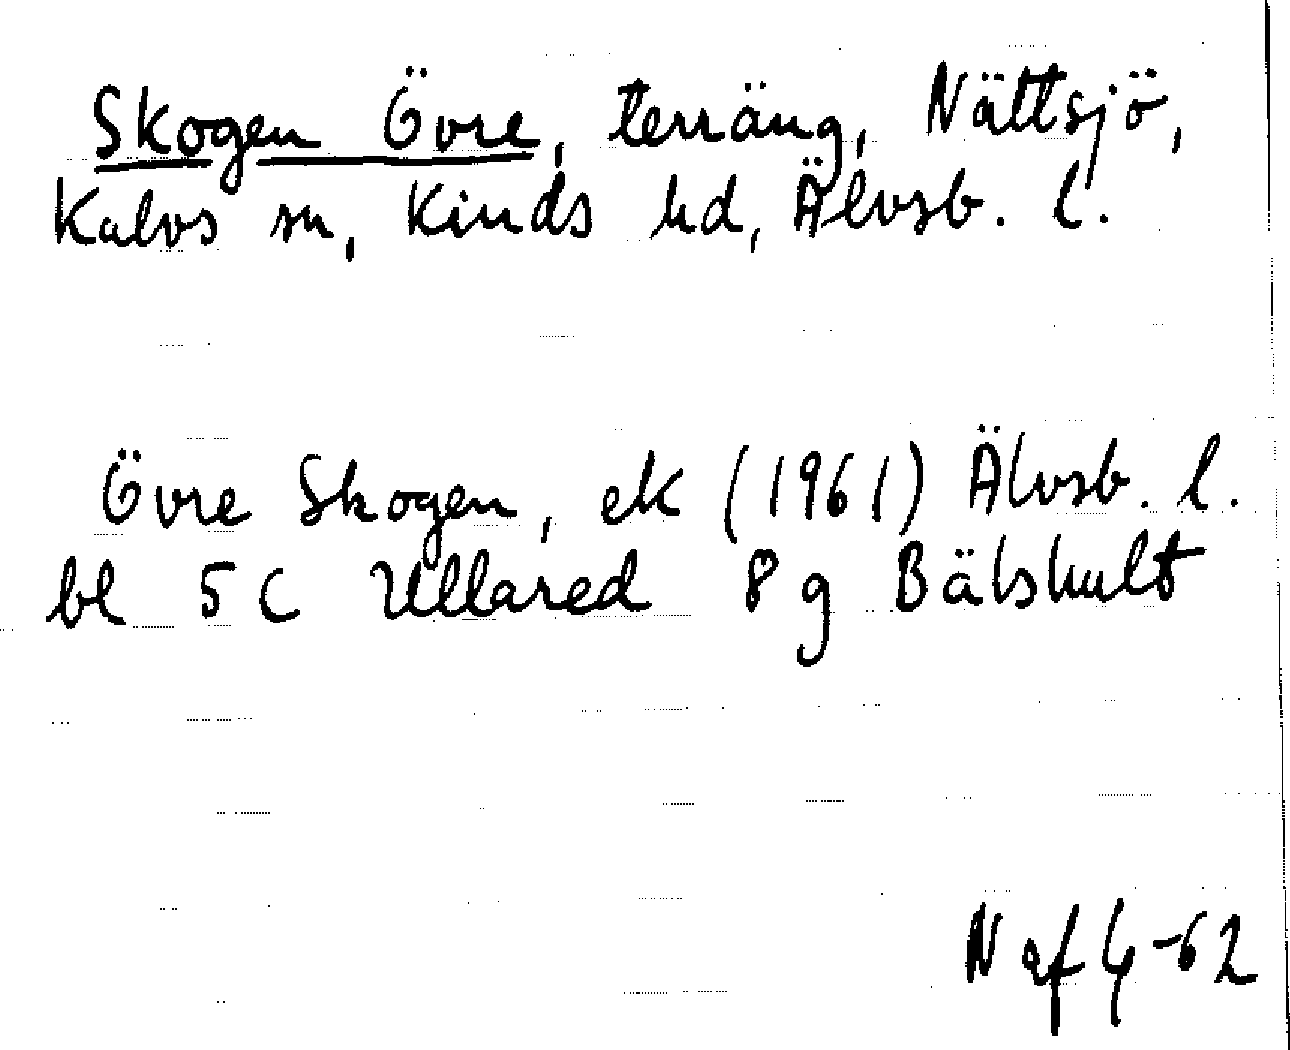 Skogen Övre, terräng, Nättsjö,
Kalvs sn, Kinds hd, Älvsb. l.
Övre Skogen, ek (1961) Älvsb. l.
bl 5 C Ullared 8 g Bälshult
N af 4-62